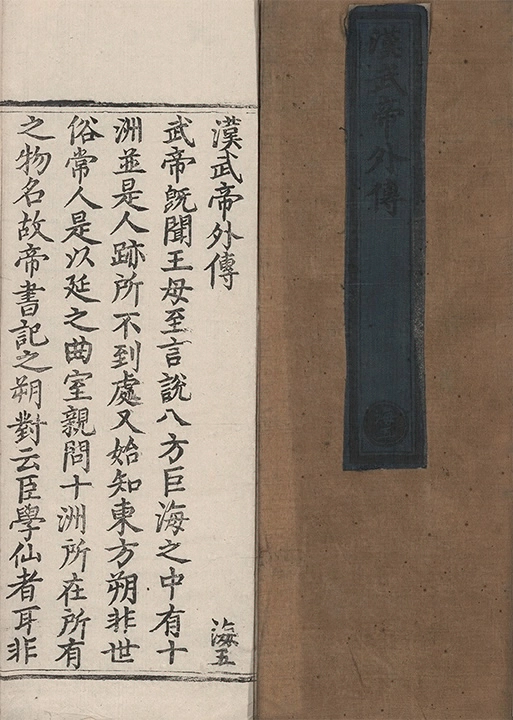 漢武帝外傳
漢武帝外傳
海五
武帝旣聞王母至言說八方巨海之中有十
洲並是人跡所不到處又始知東方朔非世
俗常人是以延之曲室親問十洲所在所有
之物名故帝書記之朔對云臣學仙者耳非